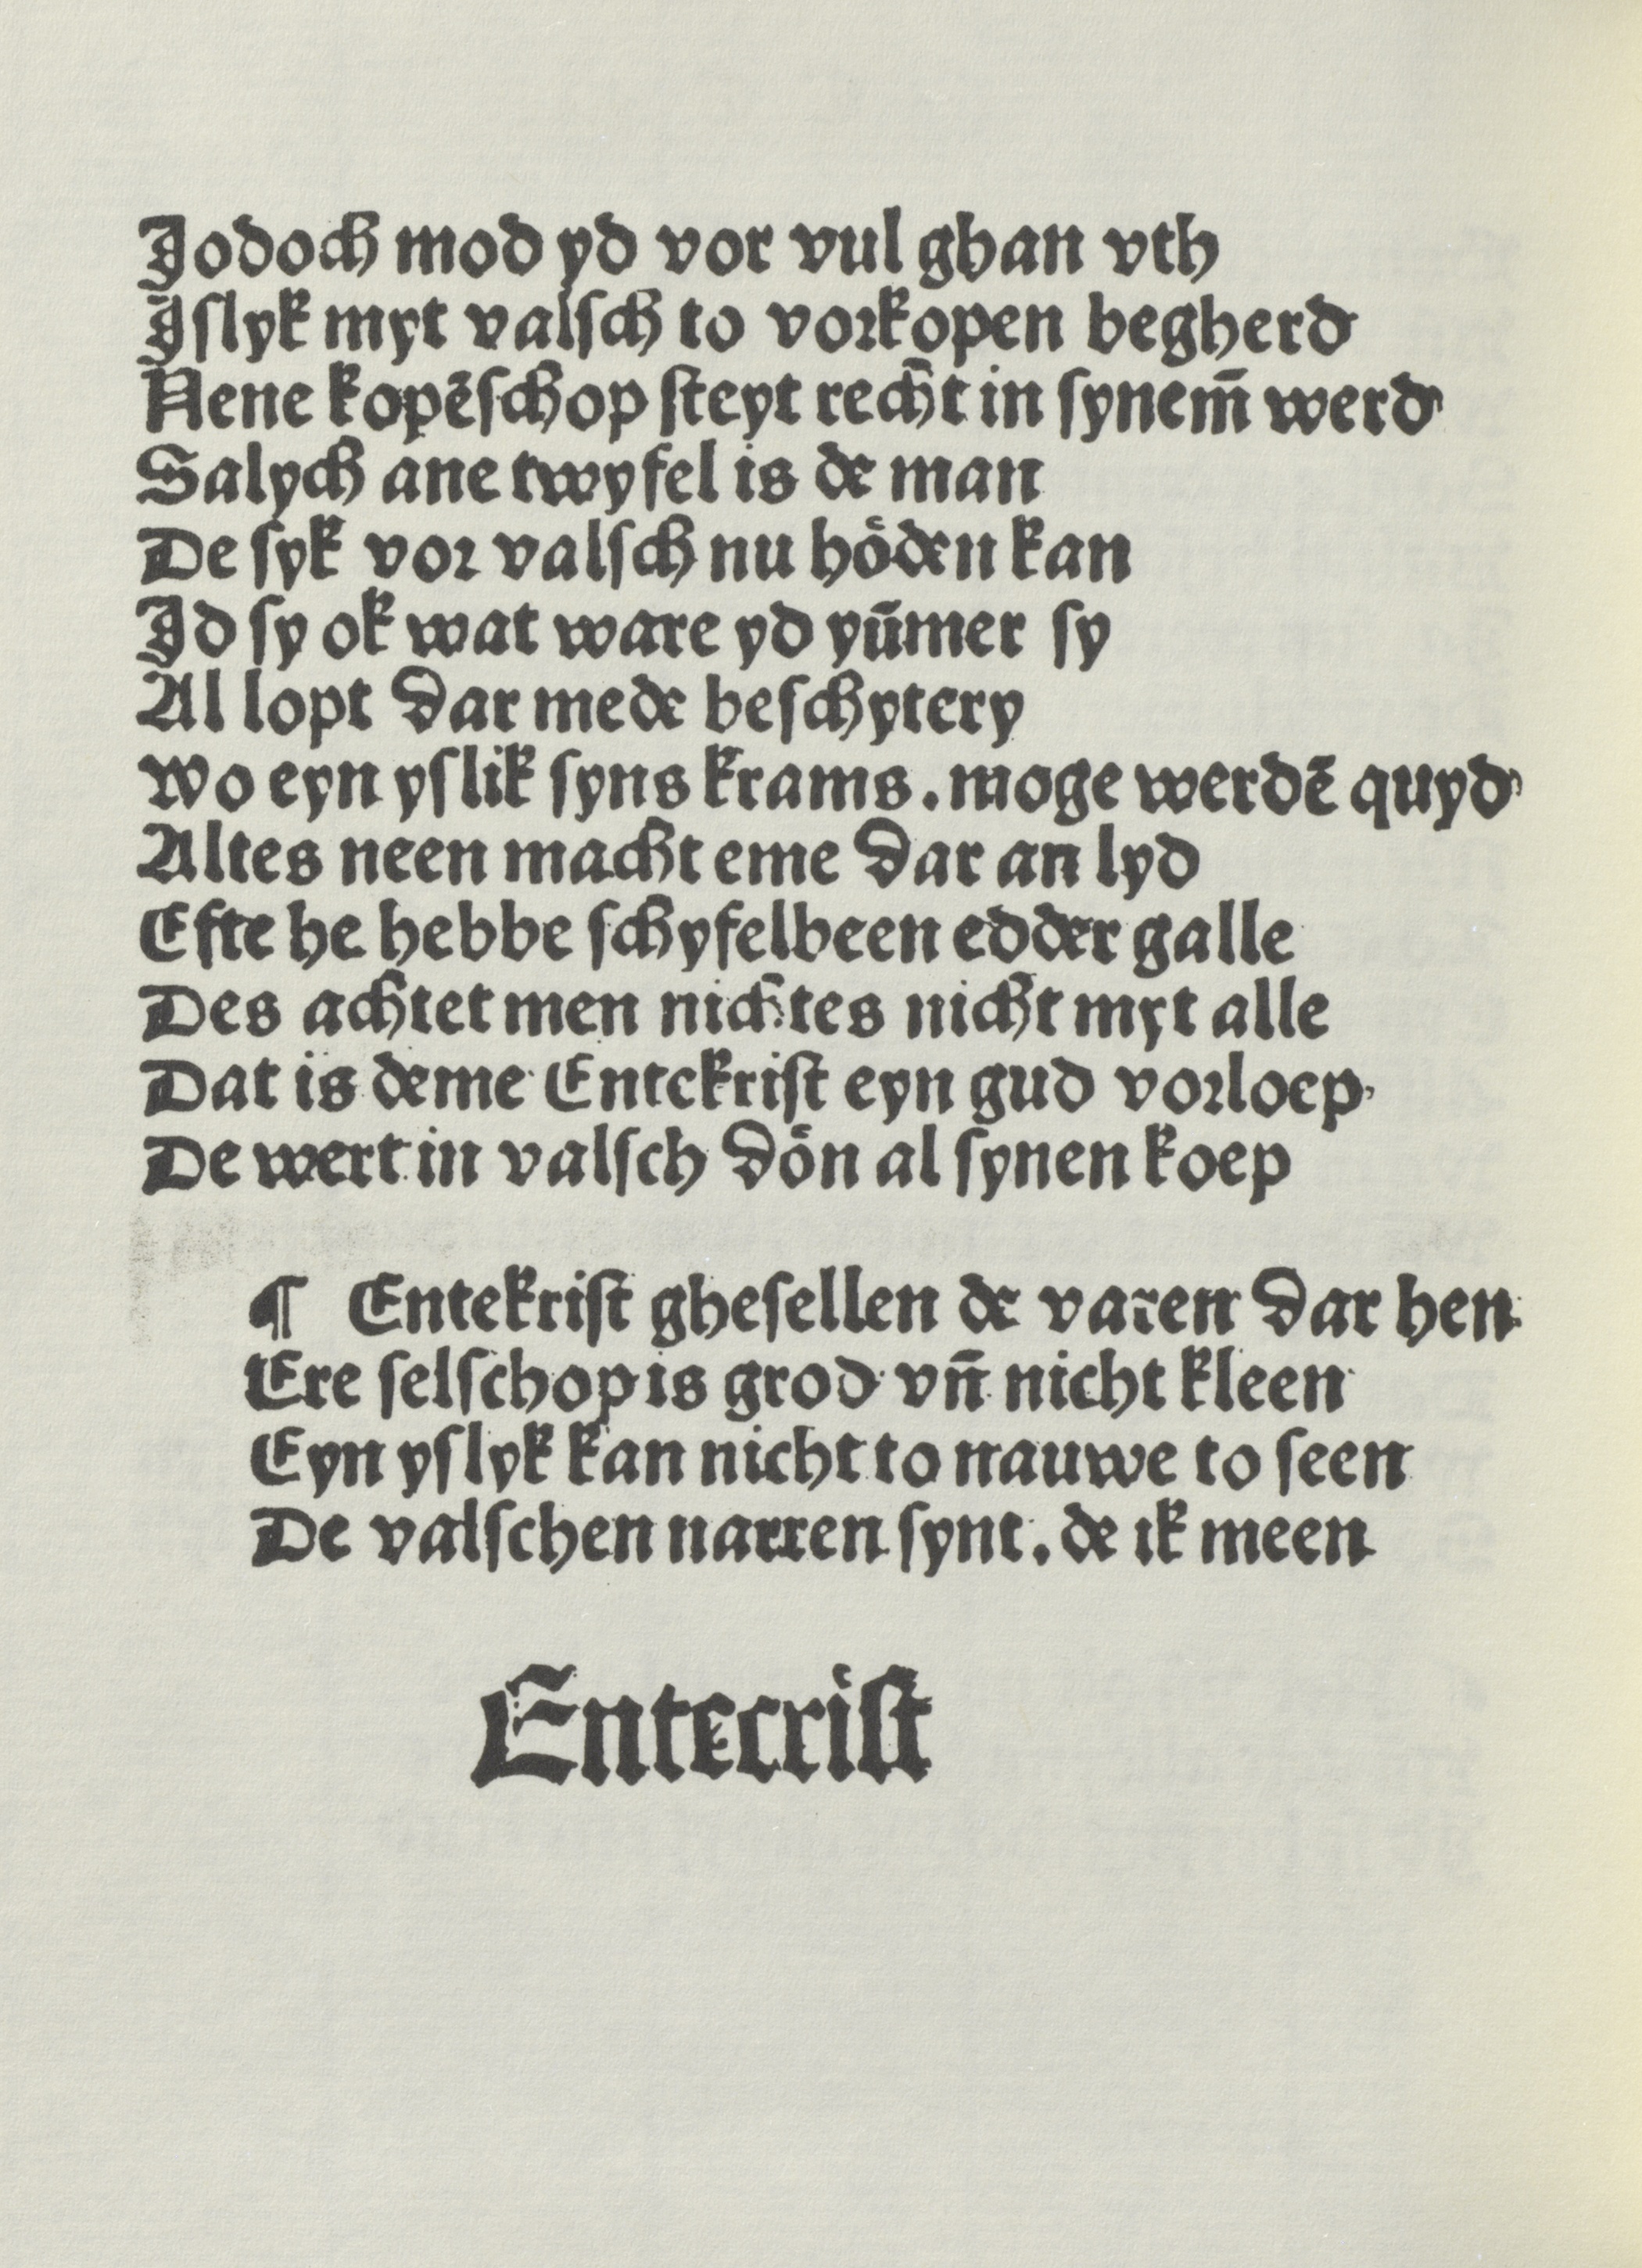 Jodoch mod yd vor vul ghan vth
Jſlyk myt valſch to vorkopen begherd
Nene kopēſchop ſteyt recht in ſynem̄ werd
Salych ane twyfel is de man
De ſyk vor valſch nu hoͤden kan
Jd ſy ok wat ware yd yūmer ſy
Al lopt dar mede beſchytery
Wo eyn yſlik ſyns krams. moge werdē quyd
Altes neen macht eme dar an lyd
Efte he hebbe ſchyfelbeen edder galle
Des achtet men nichtes nicht myt alle
Dat is deme Entekriſt eyn gud vorloep
De wert in valſch doͤn al ſynen koep
¶ Entekriſt gheſellen de varen dar hen
Ere ſelſchop is grod vn̄ nicht kleen
Eyn yſlyk kan nicht to nauwe to ſeen
De valſchen narren ſynt. de ik meen
Entecriſt